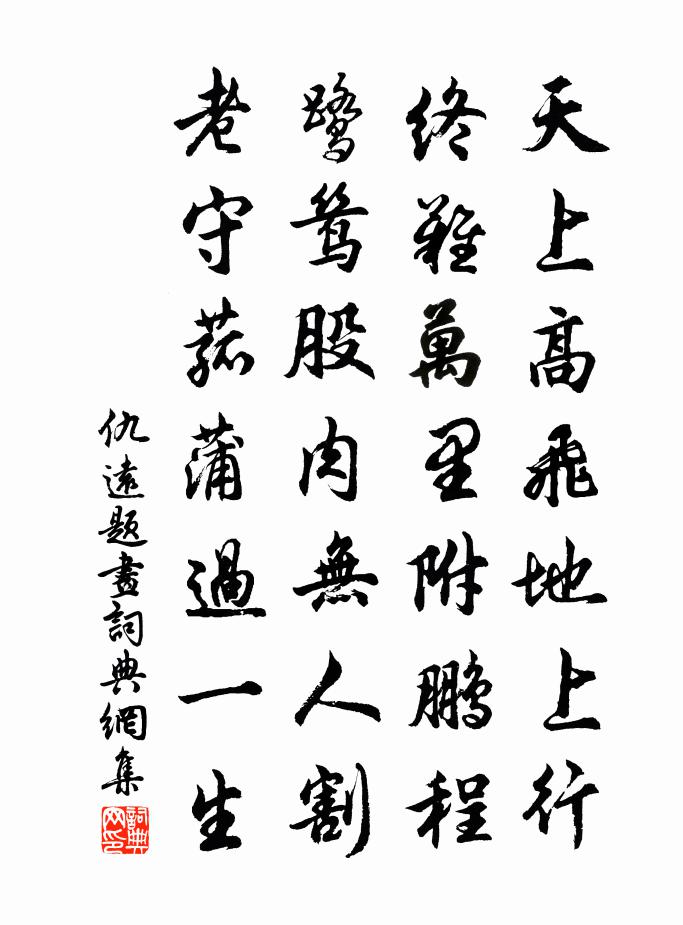 天上高飛地上行
終難萬里附鵬程
鷺鶩股肉無人割
老守菰蒲過一生
仇遠題畫詞典網集
詞典网印